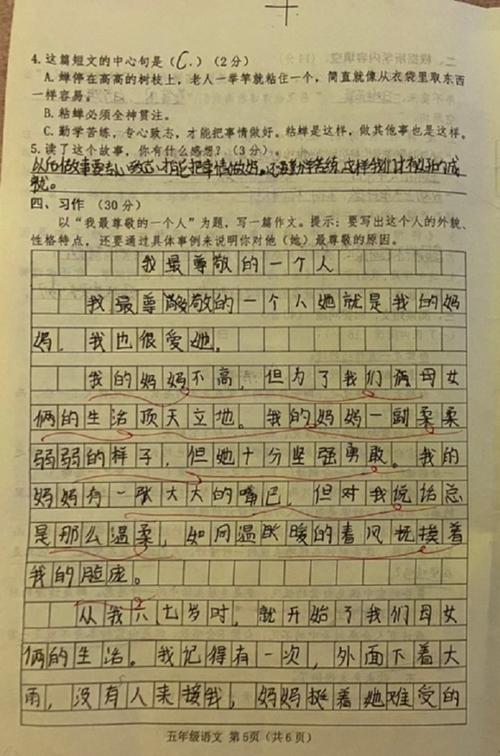 4.这篇短文的中心句是(C.)(2分)
A.蝉停在高高的树枝上,老人一举竿就粘住一个,简直就像从衣袋里取东西
一样容易。
B.粘蝉必须全神贯注。
C.勤学苦练,专心致志,才能把事情做好。粘蝉是这样,做其他事也是这样。
5.读了这个故事,你有什么感想?(3分)。
四、习作 (30分)
以“我最尊敬的一个人”为题,写一篇作文。提示:要写出这个人的外貌、
性格特点,还要通过具体事例来说明你对他(她)最尊敬的原因。
我最尊敬的一个人
我最尊敬的一个人她就是我的妈
妈,我也很爱她。
我的妈妈不高,但为了我们俩母女
俩的生活顶天立地。我的妈妈一副柔柔
弱弱的样子,但她十分坚强勇敢。我的
妈妈有一张大大的嘴巴,但对我说话总
是那么温柔,如同温暖的春风抚挨着
我的脸庞。
从我六七岁时,就开始了我们母女
俩的生活。我记得有一次,外面下着大
雨,没有人来接我,妈妈挺着她难受的
五年级语文 第5页(共6页)